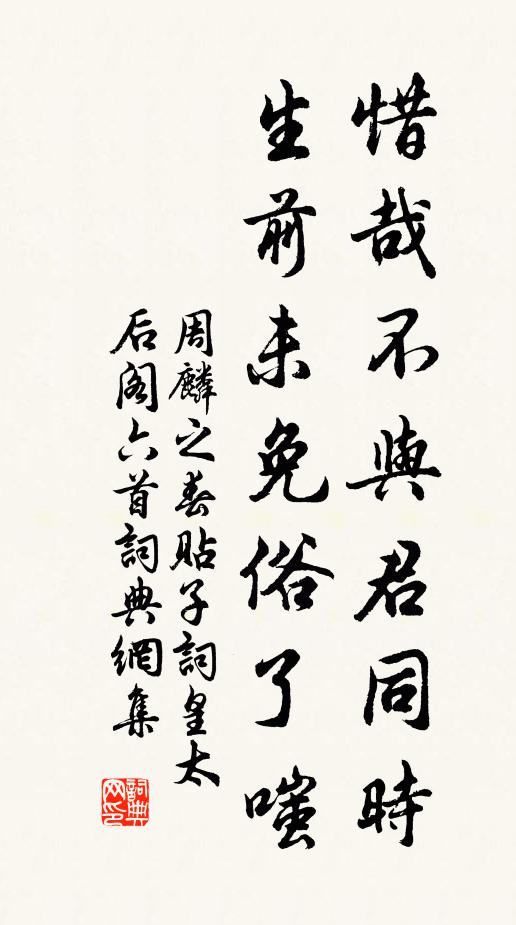 惜哉不與君同時
生前未免俗了嗤
周麟之春貼子詞皇太
后閣六首詞典網集
詞典
网印